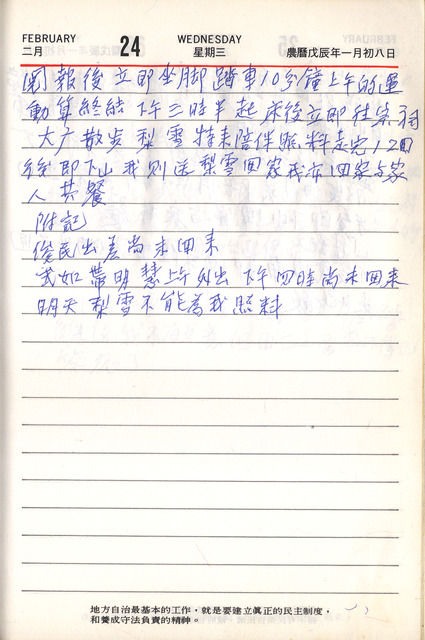 FEBRUARY
二月
24
WEDNESDAY
星期三
農曆戊辰年一月初八日
報後立即坐脚踏車10分鐘上午的運
動算終結下午三時半起床後立即往宗祠
大广散步梨雪特来陪伴照料走完12回
後即下山我則送梨雪回家我亦回家与家
人共餐
附記
俊民出差尚未回来
式如帶明慧上午外出下午四時尚未回来
明天梨雪不能為我照料
地方自治最基本的工作，就是要建立眞正的民主制度，
和養成守法負責的精神。